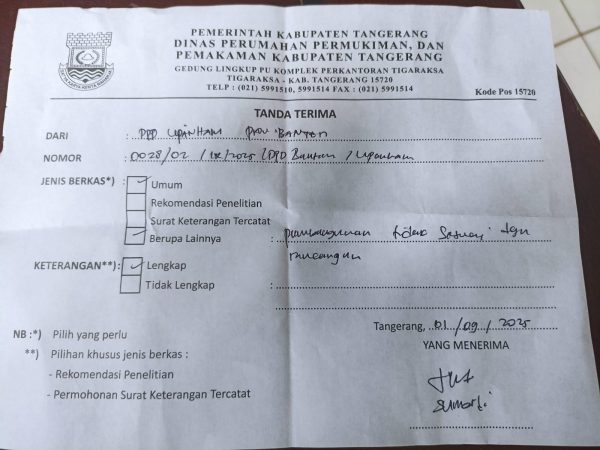 PEMERINTAH KABUPATEN TANGERANG
DINAS PERUMAHAN PERMUKIMAN, DAN
PEMAKAMAN KABUPATEN TANGERANG
GEDUNG LINGKUP PU KOMPLEK PERKANTORAN TIGARAKSA
TIGARAKSA - KAB. TANGERANG 15720
TELP : (021) 5991510, 5991514 FAX : (021) 5991514
Kode Pos 15720
TANDA TERIMA
DARI : DPD BANTEN
NOMOR : 0028/02 /IX/2025 /DPD Banten /
JENIS BERKAS*) : ✓ Umum
Rekomendasi Penelitian
Surat Keterangan Tercatat
✓ Berupa Lainnya : pembangunan tidak Sesuai dgn
rancangan
KETERANGAN**) : ✓ Lengkap
Tidak Lengkap :
Tangerang, 01 / 09 / 2025
YANG MENERIMA
NB :*) Pilih yang perlu
**) Pilihan khusus jenis berkas :
- Rekomendasi Penelitian
- Permohonan Surat Keterangan Tercatat